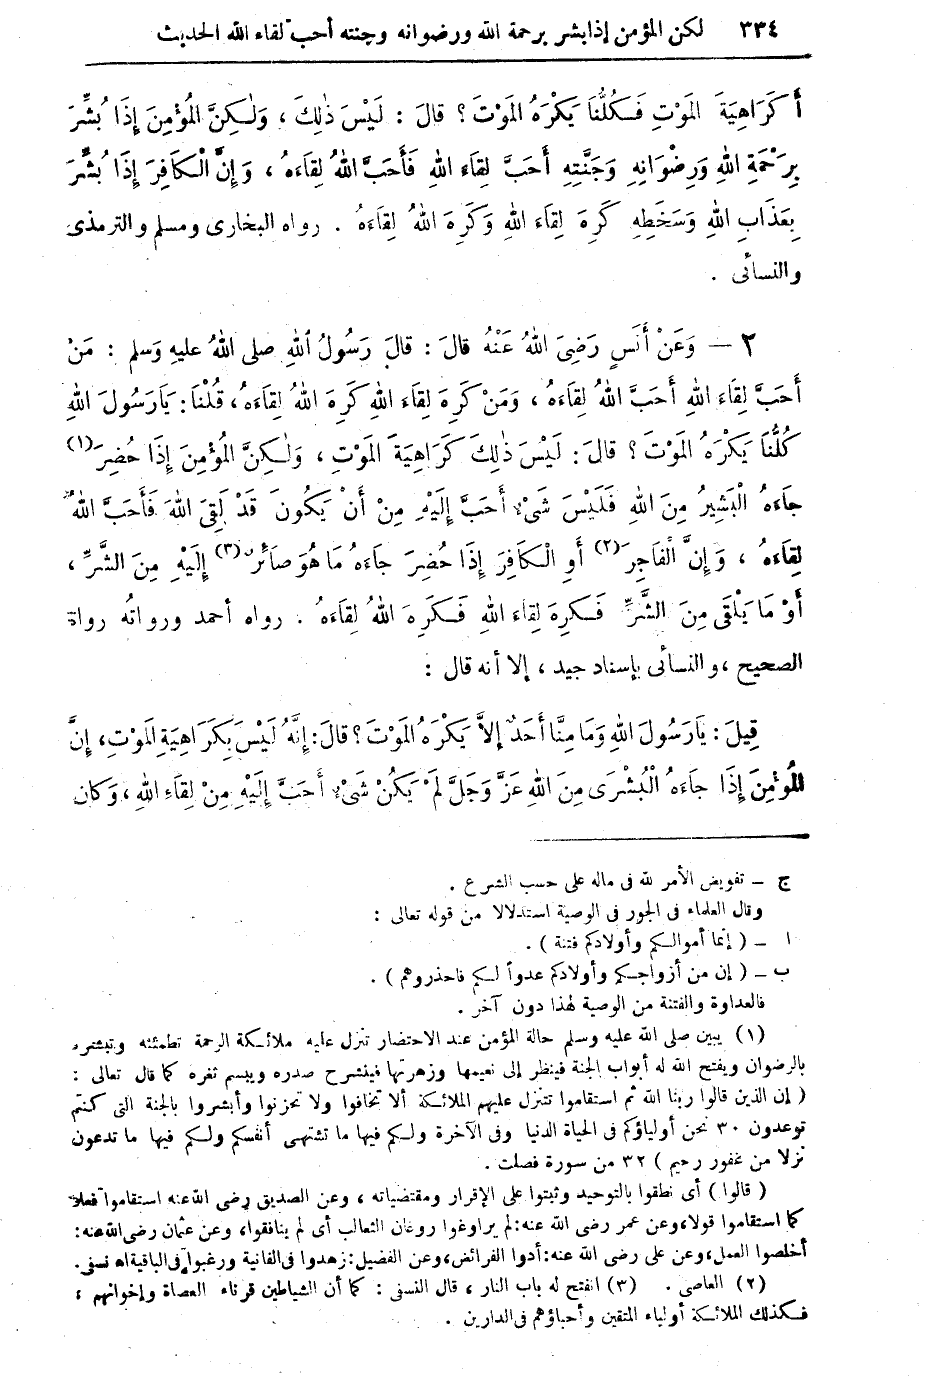 ٣٣٤ لكن المؤمن إذا بشر برحمة الله ورضوانه وجنته أحبّ لقاء الله الحديث
أَكَرَاهِيَةَ المَوْتِ فَكُلُّنَا يَكْرَهُ المَوْتَ؟ قالَ: لَيْسَ ذٰلِكَ، وَلٰكِنَّ المُؤْمِنَ إِذَا بُشِّرَ
بِرَحْمَةِ اللهِ وَرِضْوَانِهِ وَجَنَّتِهِ أَحَبَّ لِقَاءَ اللهِ فَأَحَبَّ اللهُ لِقَاءَهُ، وَإِنَّ الْكَافِرَ إِذَا بُشِّرَ
بِعَذَابِ اللهِ وَسَخَطِهِ كَرِهَ لِقَاءَ اللهِ وَكَرِهَ اللهُ لِقَاءَهُ. رواه البخارى ومسلم والترمذى
والنسائى.
٢ — وَعَنْ أَنَسٍ رَضِىَ اللهُ عَنْهُ قالَ: قالَ رَسُولُ اللهِ صلى اللهُ عليهِ وَسلم: مَنْ
أَحَبَّ لِقَاءَ اللهِ أَحَبَّ اللهُ لِقَاءَهُ، وَمَنْ كَرِهَ لِقَاءَ اللهِ كَرِهَ اللهُ لِقَاءَهُ، قُلْنَا: يَارَسُولَ اللهِ
كُلُّنَا يَكْرَهُ المَوْتَ؟ قالَ: لَيْسَ ذٰلِكَ كَرَاهِيَةَ المَوْتِ، وَلٰكِنَّ المُؤْمِنَ إِذَا حُضِرَ(١)
جَاءَهُ الْبَشِيرُ مِنَ اللهِ فَلَيْسَ شَىْءٌ أَحَبَّ إِلَيْهِ مِنْ أَنْ يَكُونَ قَدْ لَقِىَ اللهَ فَأَحَبَّ اللهُ
لِقَاءَهُ، وَإِنَّ الْفَاجِرَ(٢) أَوِ الْكَافِرَ إِذَا حُضِرَ جَاءَهُ مَا هُوَ صَائِرٌ(٣) إِلَيْهِ مِنَ الشَّرِّ،
أَوْ مَا يَلْقَى مِنَ الشَّرِّ فَكَرِهَ لِقَاءَ اللهِ فَكَرِهَ اللهُ لِقَاءَهُ. رواه أحمد ورواتُه رواة
الصحيح، والنسائى بإسناد جيد، إلا أنه قال:
قِيلَ: يَارَسُولَ اللهِ وَمَا مِنَّا أَحَدٌ إِلاَّ يَكْرَهُ المَوْتَ؟ قالَ: إِنَّهُ لَيْسَ بِكَرَاهِيَةِ المَوْتِ، إِنَّ
المُؤْمِنَ إِذَا جَاءَهُ الْبُشْرَى مِنَ اللهِ عَزَّ وَجَلَّ لَمْ يَكُنْ شَىْءٌ أَحَبَّ إِلَيْهِ مِنْ لِقَاءِ اللهِ، وَكان
ج — تفويض الأمر لله فى ماله على حسب الشرع.
وقال العلماء فى الجور فى الوصية استدلالا من قوله تعالى:
ا — (إنما أموالكم وأولادكم فتنة).
ب — (إن من أزواجكم وأولادكم عدواً لكم فاحذروهم).
فالعداوة والفتنة من الوصية لهذا دون آخر.
(١) يبين صلى الله عليه وسلم حالة المؤمن عند الاحتضار تنزل عليه ملائكة الرحمة تطمئنه وتبشره
بالرضوان ويفتح الله له أبواب الجنة فينظر إلى نعيمها وزهرتها فينشرح صدره ويبسم ثغره كما قال تعالى:
(إن الذين قالوا ربنا الله ثم استقاموا تتنزل عليهم الملائكة ألا تخافوا ولا تحزنوا وأبشروا بالجنة التى كنتم
توعدون ٣٠ نحن أولياؤكم فى الحياة الدنيا وفى الآخرة ولكم فيها ما تشتهى أنفسكم ولكم فيها ما تدعون
نزلا من غفور رحيم) ٣٢ من سورة فصلت.
(قالوا) أى نطقوا بالتوحيد وثبتوا على الإقرار ومقتضياته، وعن الصديق رضى الله عنه استقاموا فعلا
كما استقاموا قولا، وعن عمر رضى الله عنه: لم يراوغوا روغان الثعالب أى لم ينافقوا، وعن عثمان رضى الله عنه:
أخلصوا العمل، وعن على رضى الله عنه: أدوا الفرائض، وعن الفضيل: زهدوا فى الفانية ورغبوا فى الباقية اه نسفى.
(٢) العاصى. (٣) انفتح له باب النار، قال النسفى: كما أن الشياطين قرناء العصاة وإخوانهم،
فكذلك الملائكة أولياء المتقين وأحباؤهم فى الدارين.